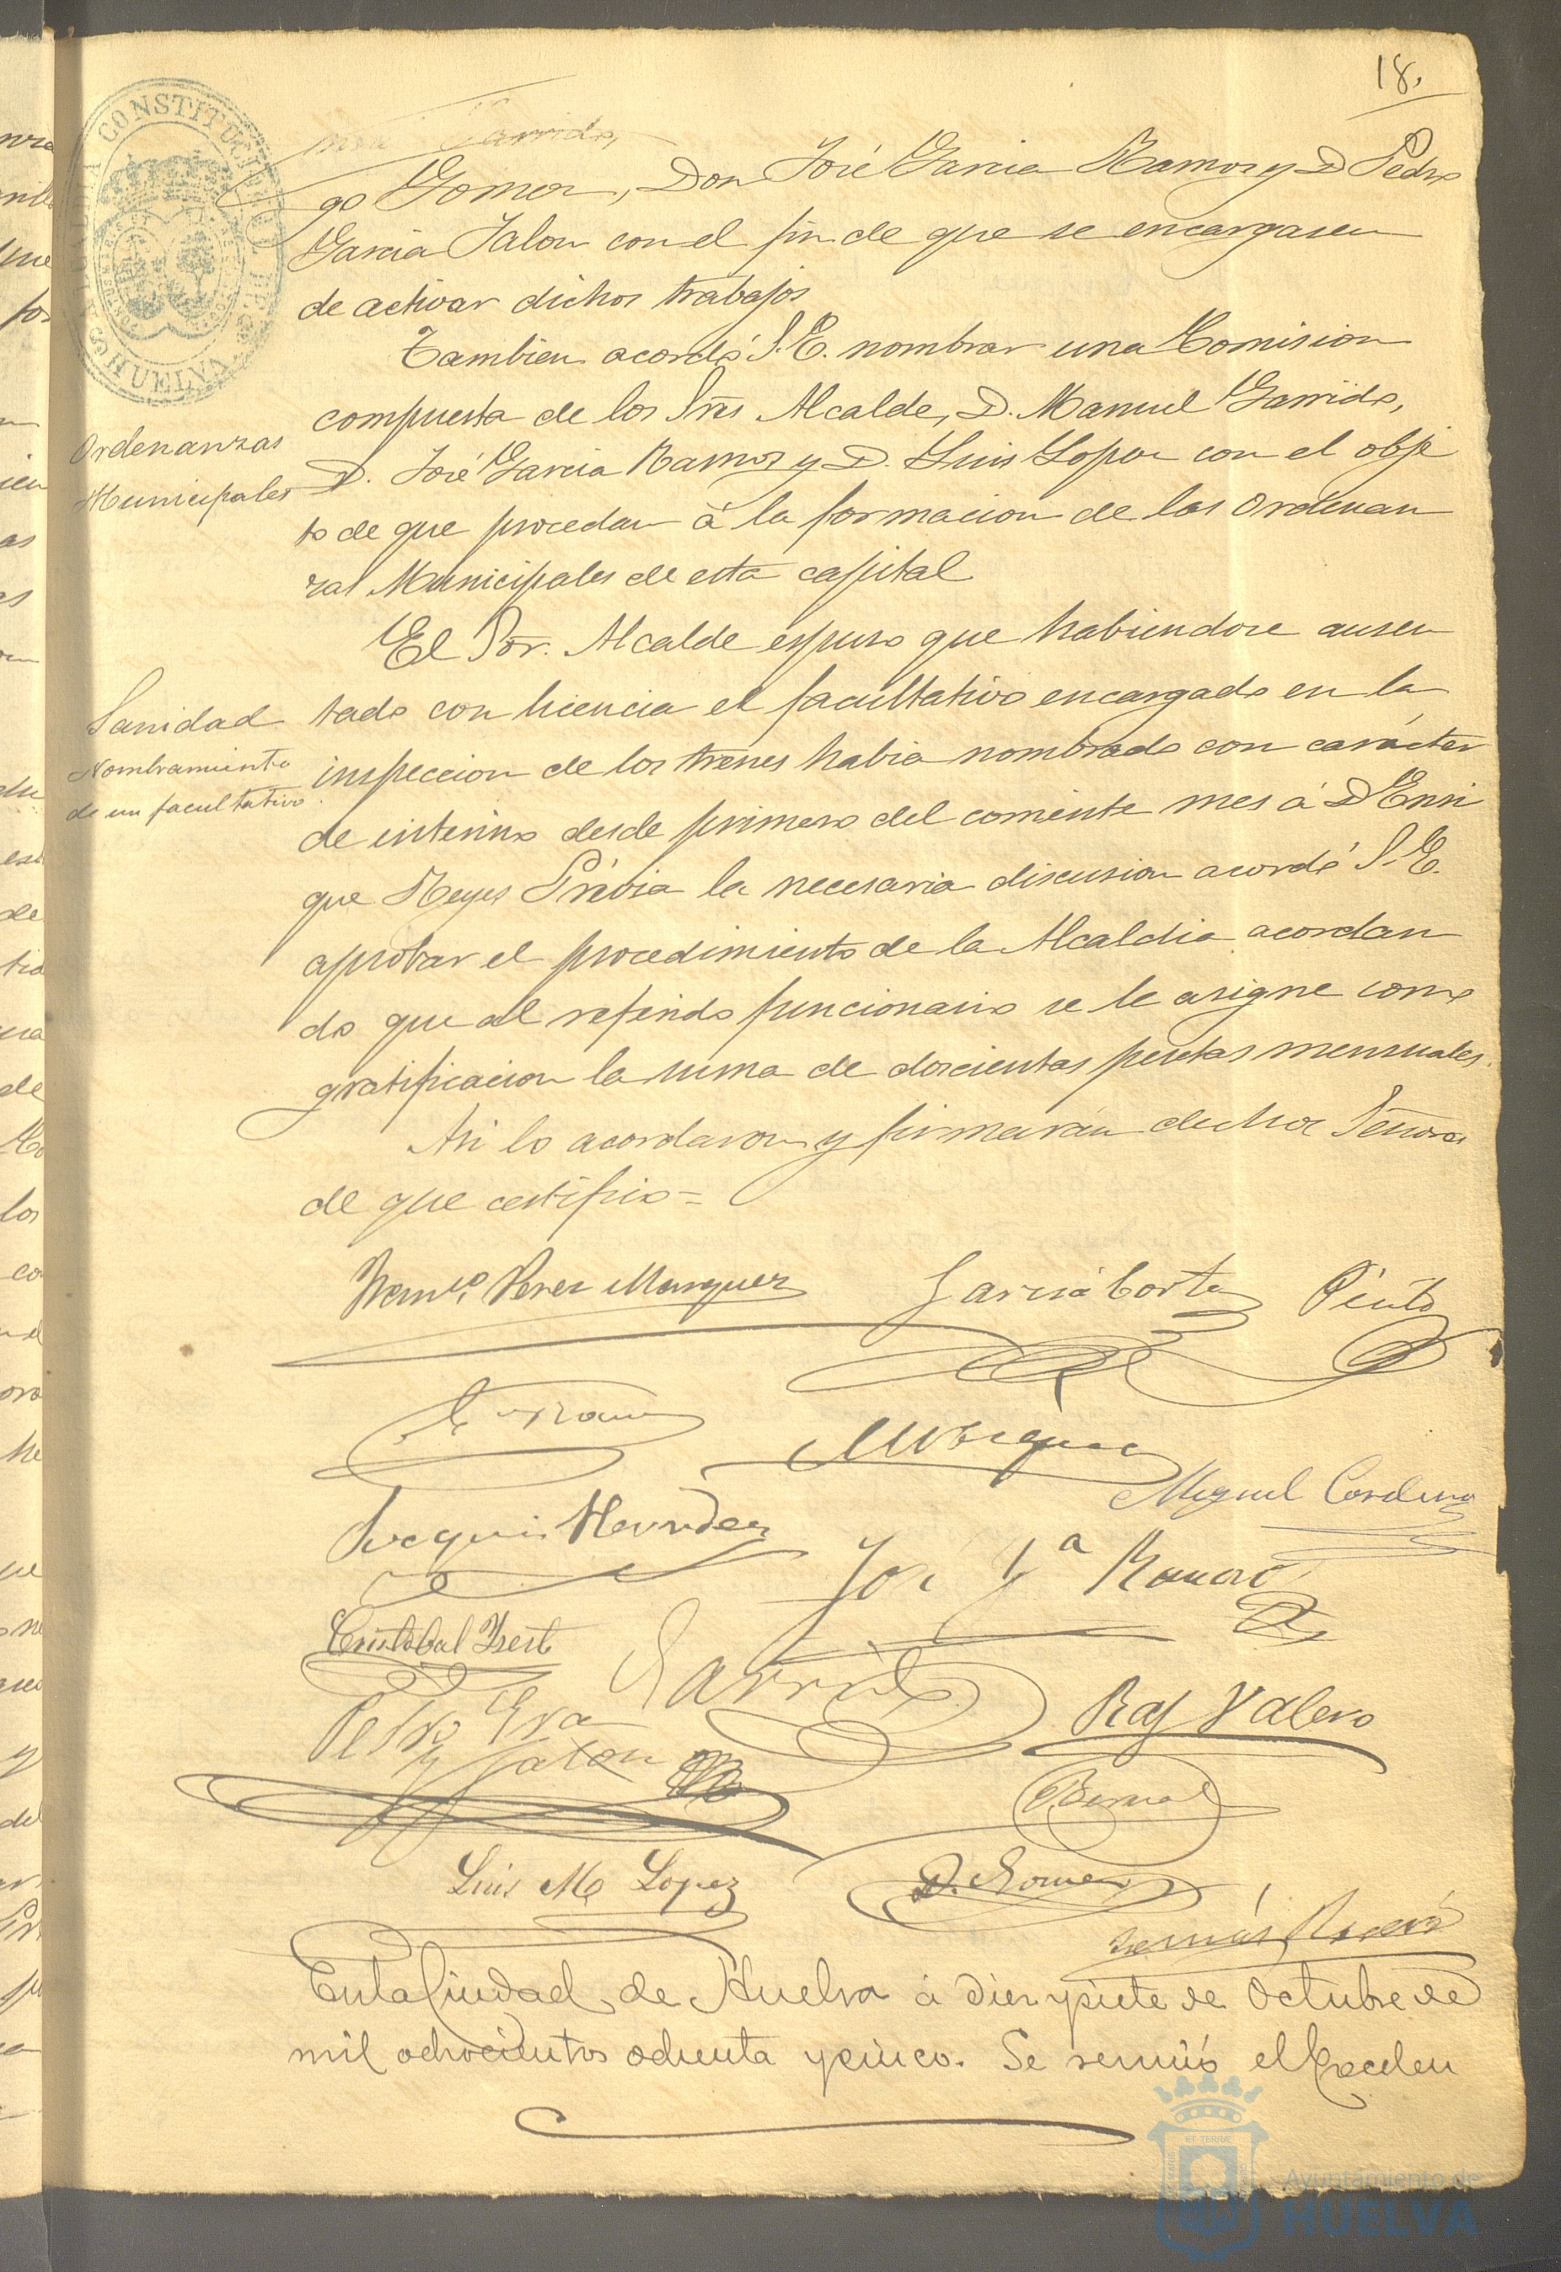 18.
Garrido,
go Gomez, Don José Garcia Ramos y D Pedro
Garcia Jalon con el fin de que se encargasen
de activar dichos trabajos
Tambien acordó S.E. nombrar una Comision
compuesta de los Sres Alcalde, D. Manuel Garrido,
Ordenanzas
Municipales
D. José Garcia Ramos y D. Luis Lopez con el obje
to de que procedan á la formacion de las Ordenan
zas Municipales de esta capital
El Sor. Alcalde espuso que habiendose ausen
Sanidad
Nombramiento
de un facultativo
tado con licencia el facultativo encargado en la
inspeccion de los trenes habia nombrado con carácter
de interino desde primero del corriente mes á D Enri
que Reyes Prévia la necesaria discusion acordó S.E.
aprobar el procedimiento de la Alcaldia acordan
do que al referido funcionario se le asigne como
gratificacion la suma de doscientas pesetas mensuales.
Asi lo acordaron y firmarán dichos Señores
de que certifico =
Perez Marquez
Garcia Cortes
Pinto
Miguel Cordero
Joaquin Hernandez
José Ga Ramos
Cristobal Ysert
Garrido
Pedro Gra
y Jalon
Raf Valero
Bernal
Luis M Lopez
D. Gomez
Tomás
En la Ciudad de Huelva á diez y siete de Octubre de
mil ochocientos ochenta y cinco. Se reunió el Excelen
CONSTITUCIONAL DE HUELVA
Ayuntamiento de
HUELVA